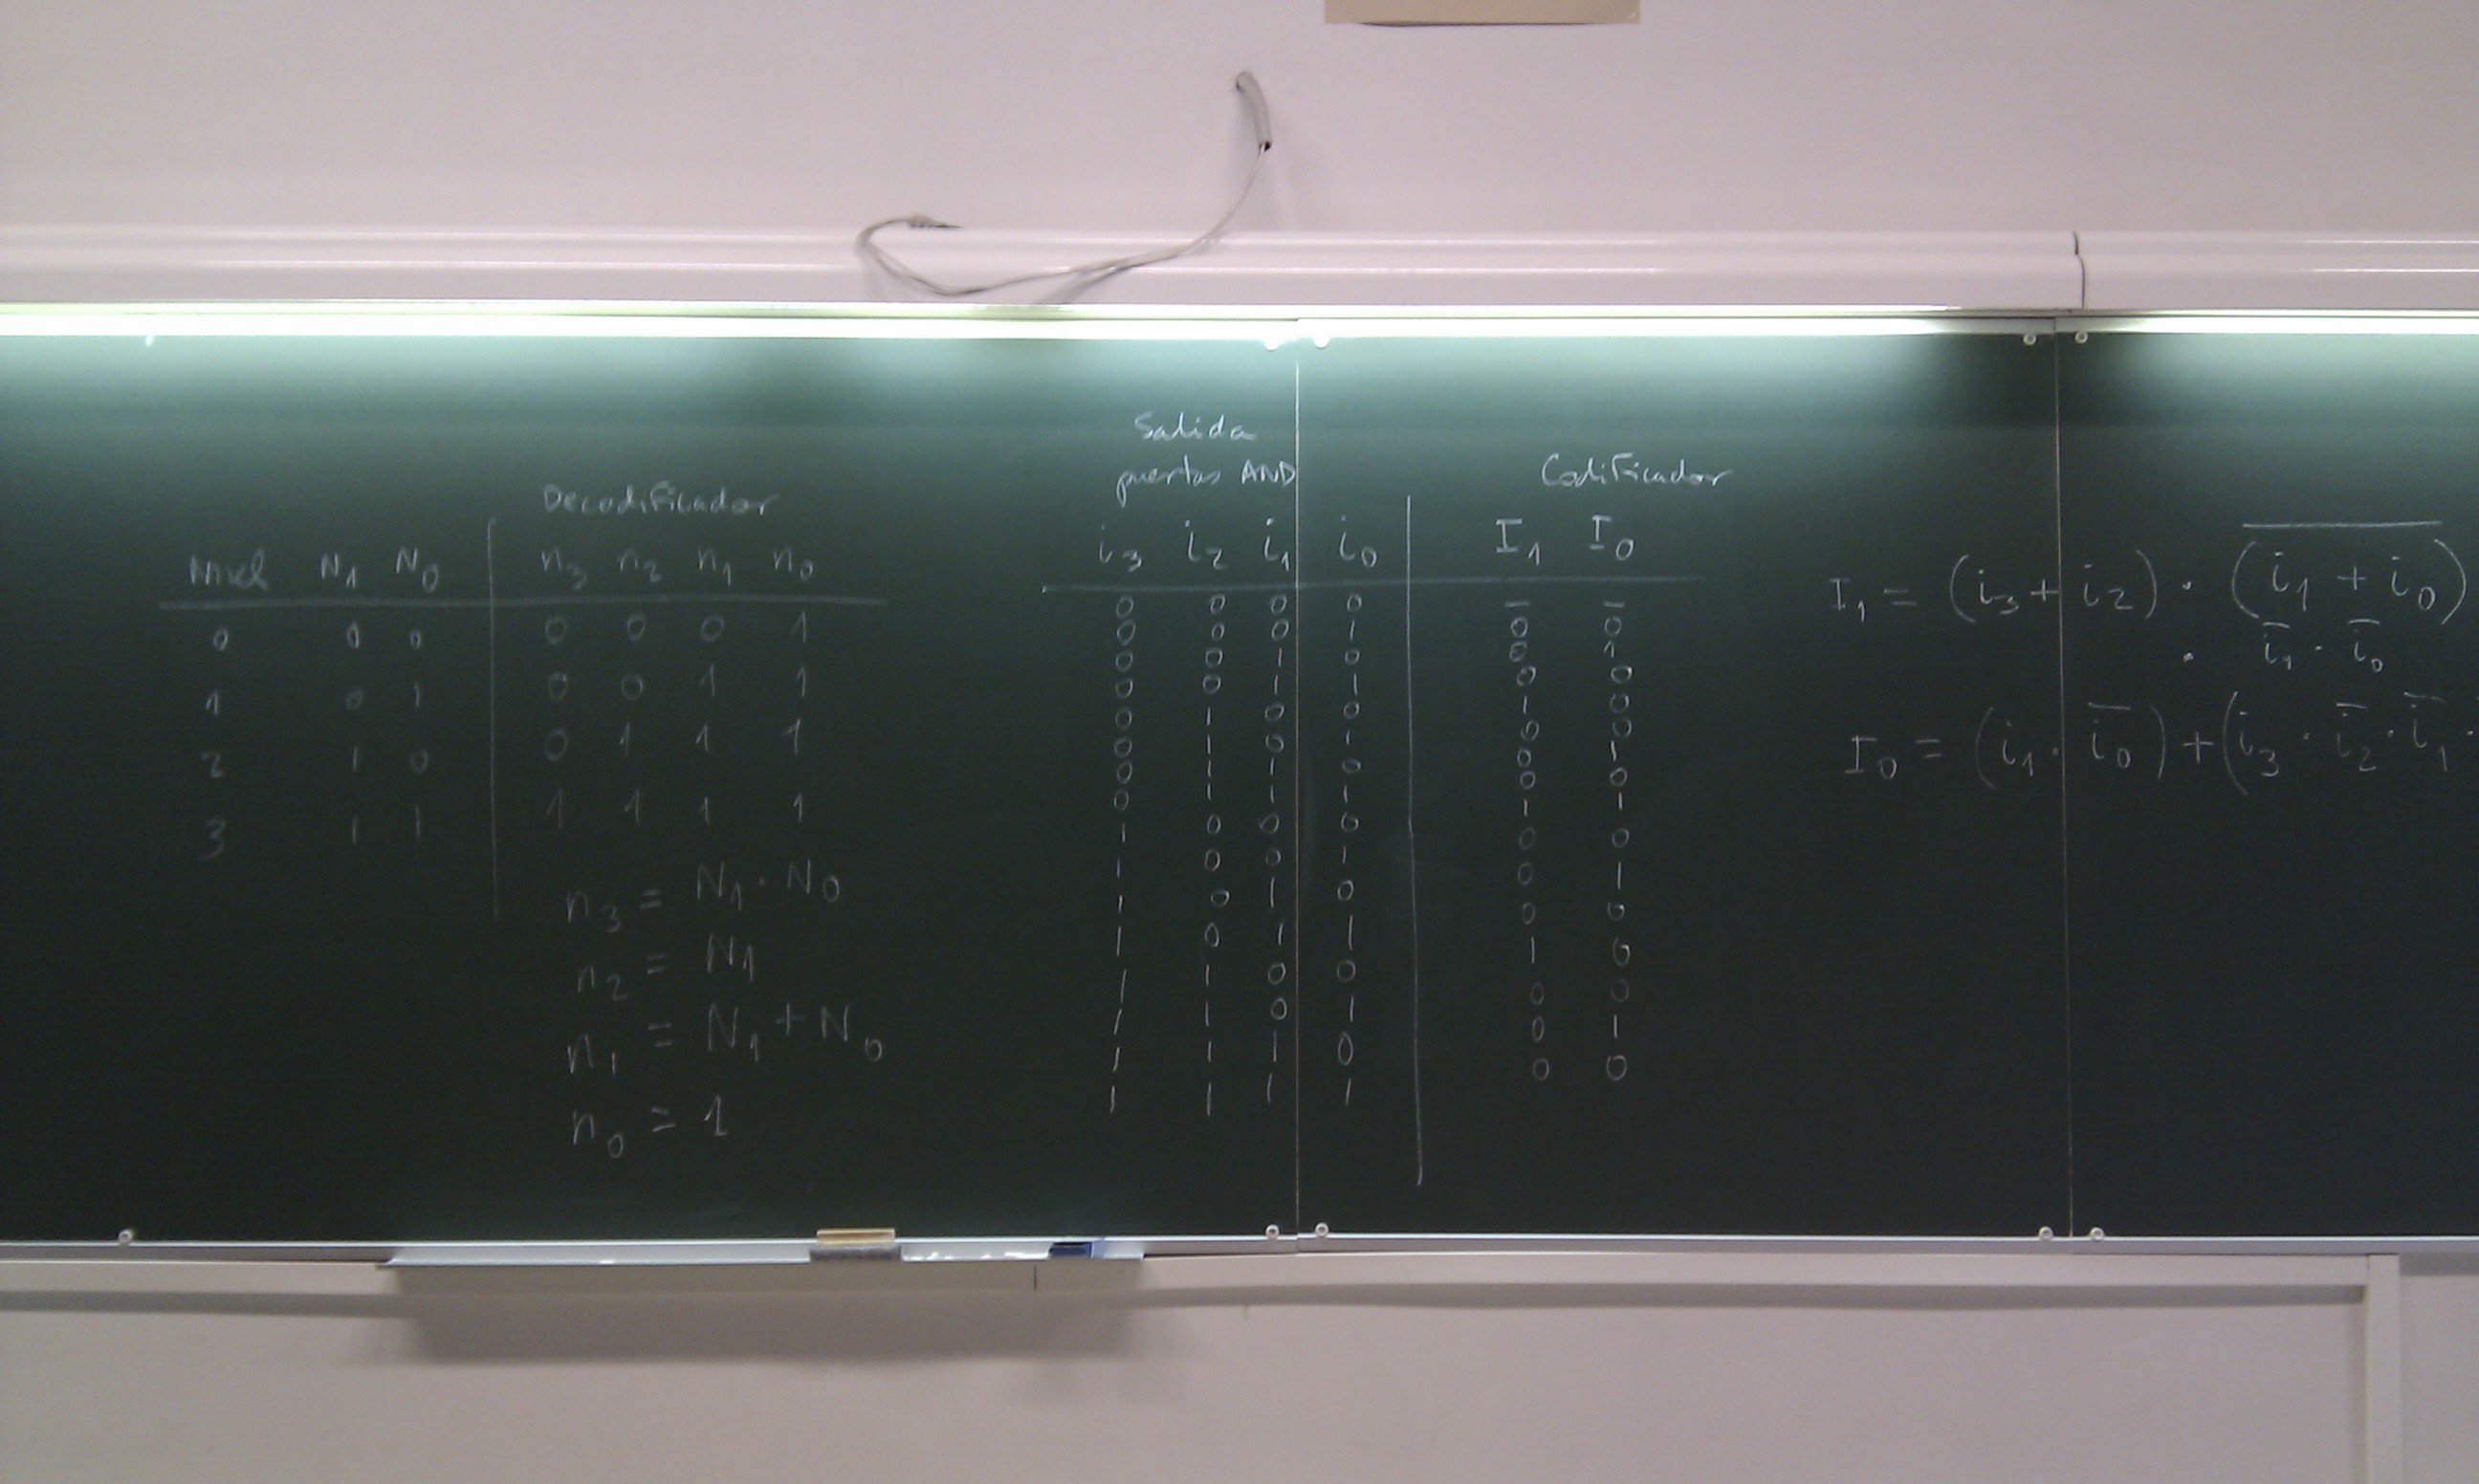 Decodificador
Nivel N₁ N₀ | n₃ n₂ n₁ n₀
0 0 0 | 0 0 0 1
1 0 1 | 0 0 1 1
2 1 0 | 0 1 1 1
3 1 1 | 1 1 1 1
n₃ = N₁ · N₀
n₂ = N₁
n₁ = N₁ + N₀
n₀ = 1
Salida
puertas AND
Codificador
i₃ i₂ i₁ i₀ | I₁ I₀
0 0 0 0 | – –
0 0 0 1 | 0 0
0 0 1 0 | 0 1
0 0 1 1 | 0 0
0 1 0 0 | 1 0
0 1 0 1 | 0 0
0 1 1 0 | 0 1
0 1 1 1 | 0 0
1 0 0 0 | 1 1
1 0 0 1 | 0 0
1 0 1 0 | 0 1
1 0 1 1 | 0 0
1 1 0 0 | 1 0
1 1 0 1 | 0 0
1 1 1 0 | 0 1
1 1 1 1 | 0 0
I₁ = (i₃ + i₂) · \overline{(i₁ + i₀)}
· \overline{i₁} · \overline{i₀}
I₀ = (i₁ · \overline{i₀}) + (i₃ · \overline{i₂} · \overline{i₁} ·